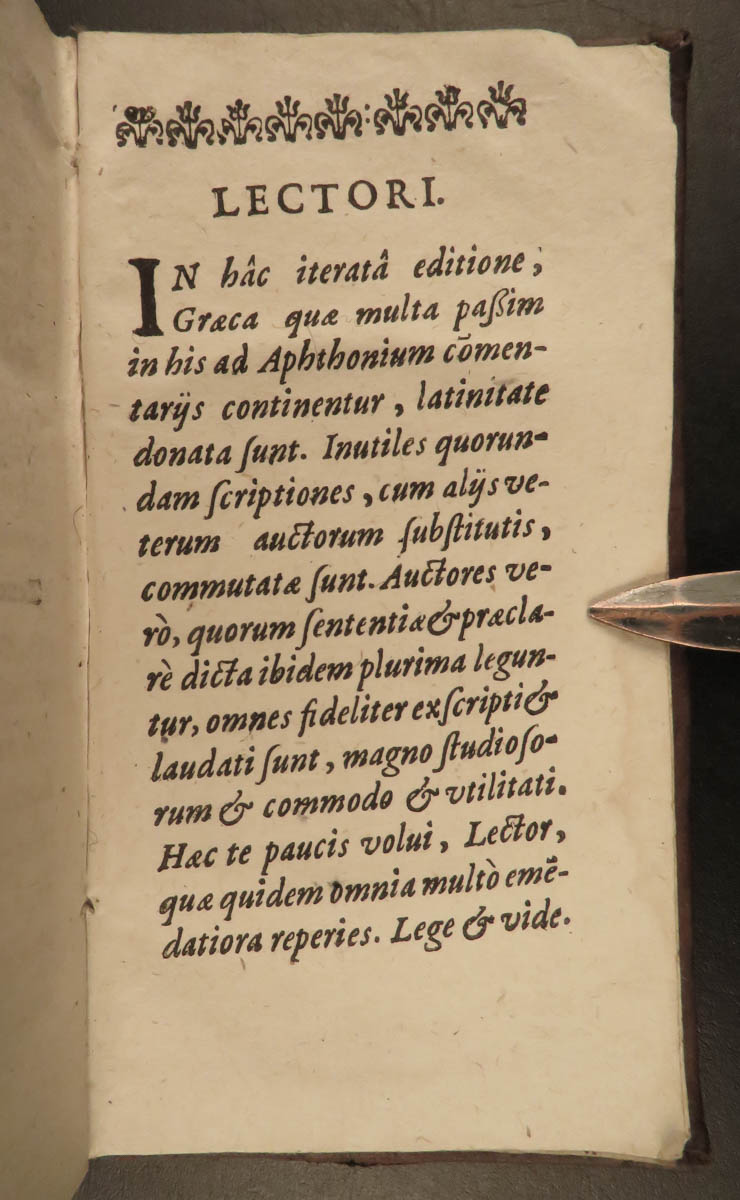 LECTORI.
IN hâc iteratâ editione,
Græca quæ multa paßim
in his ad Aphthonium cōmen-
tarijs continentur, latinitate
donata ſunt. Inutiles quorun-
dam ſcriptiones, cum alijs ve-
terum auctorum ſubſtitutis,
commutatæ ſunt. Auctores ve-
rò, quorum ſententiæ & præcla-
rè dicta ibidem plurima legun-
tur, omnes fideliter exſcripti &
laudati ſunt, magno ſtudioſo-
rum & commodo & vtilitati.
Hæc te paucis volui, Lector,
quæ quidem omnia multò emē-
datiora reperies. Lege & vide.